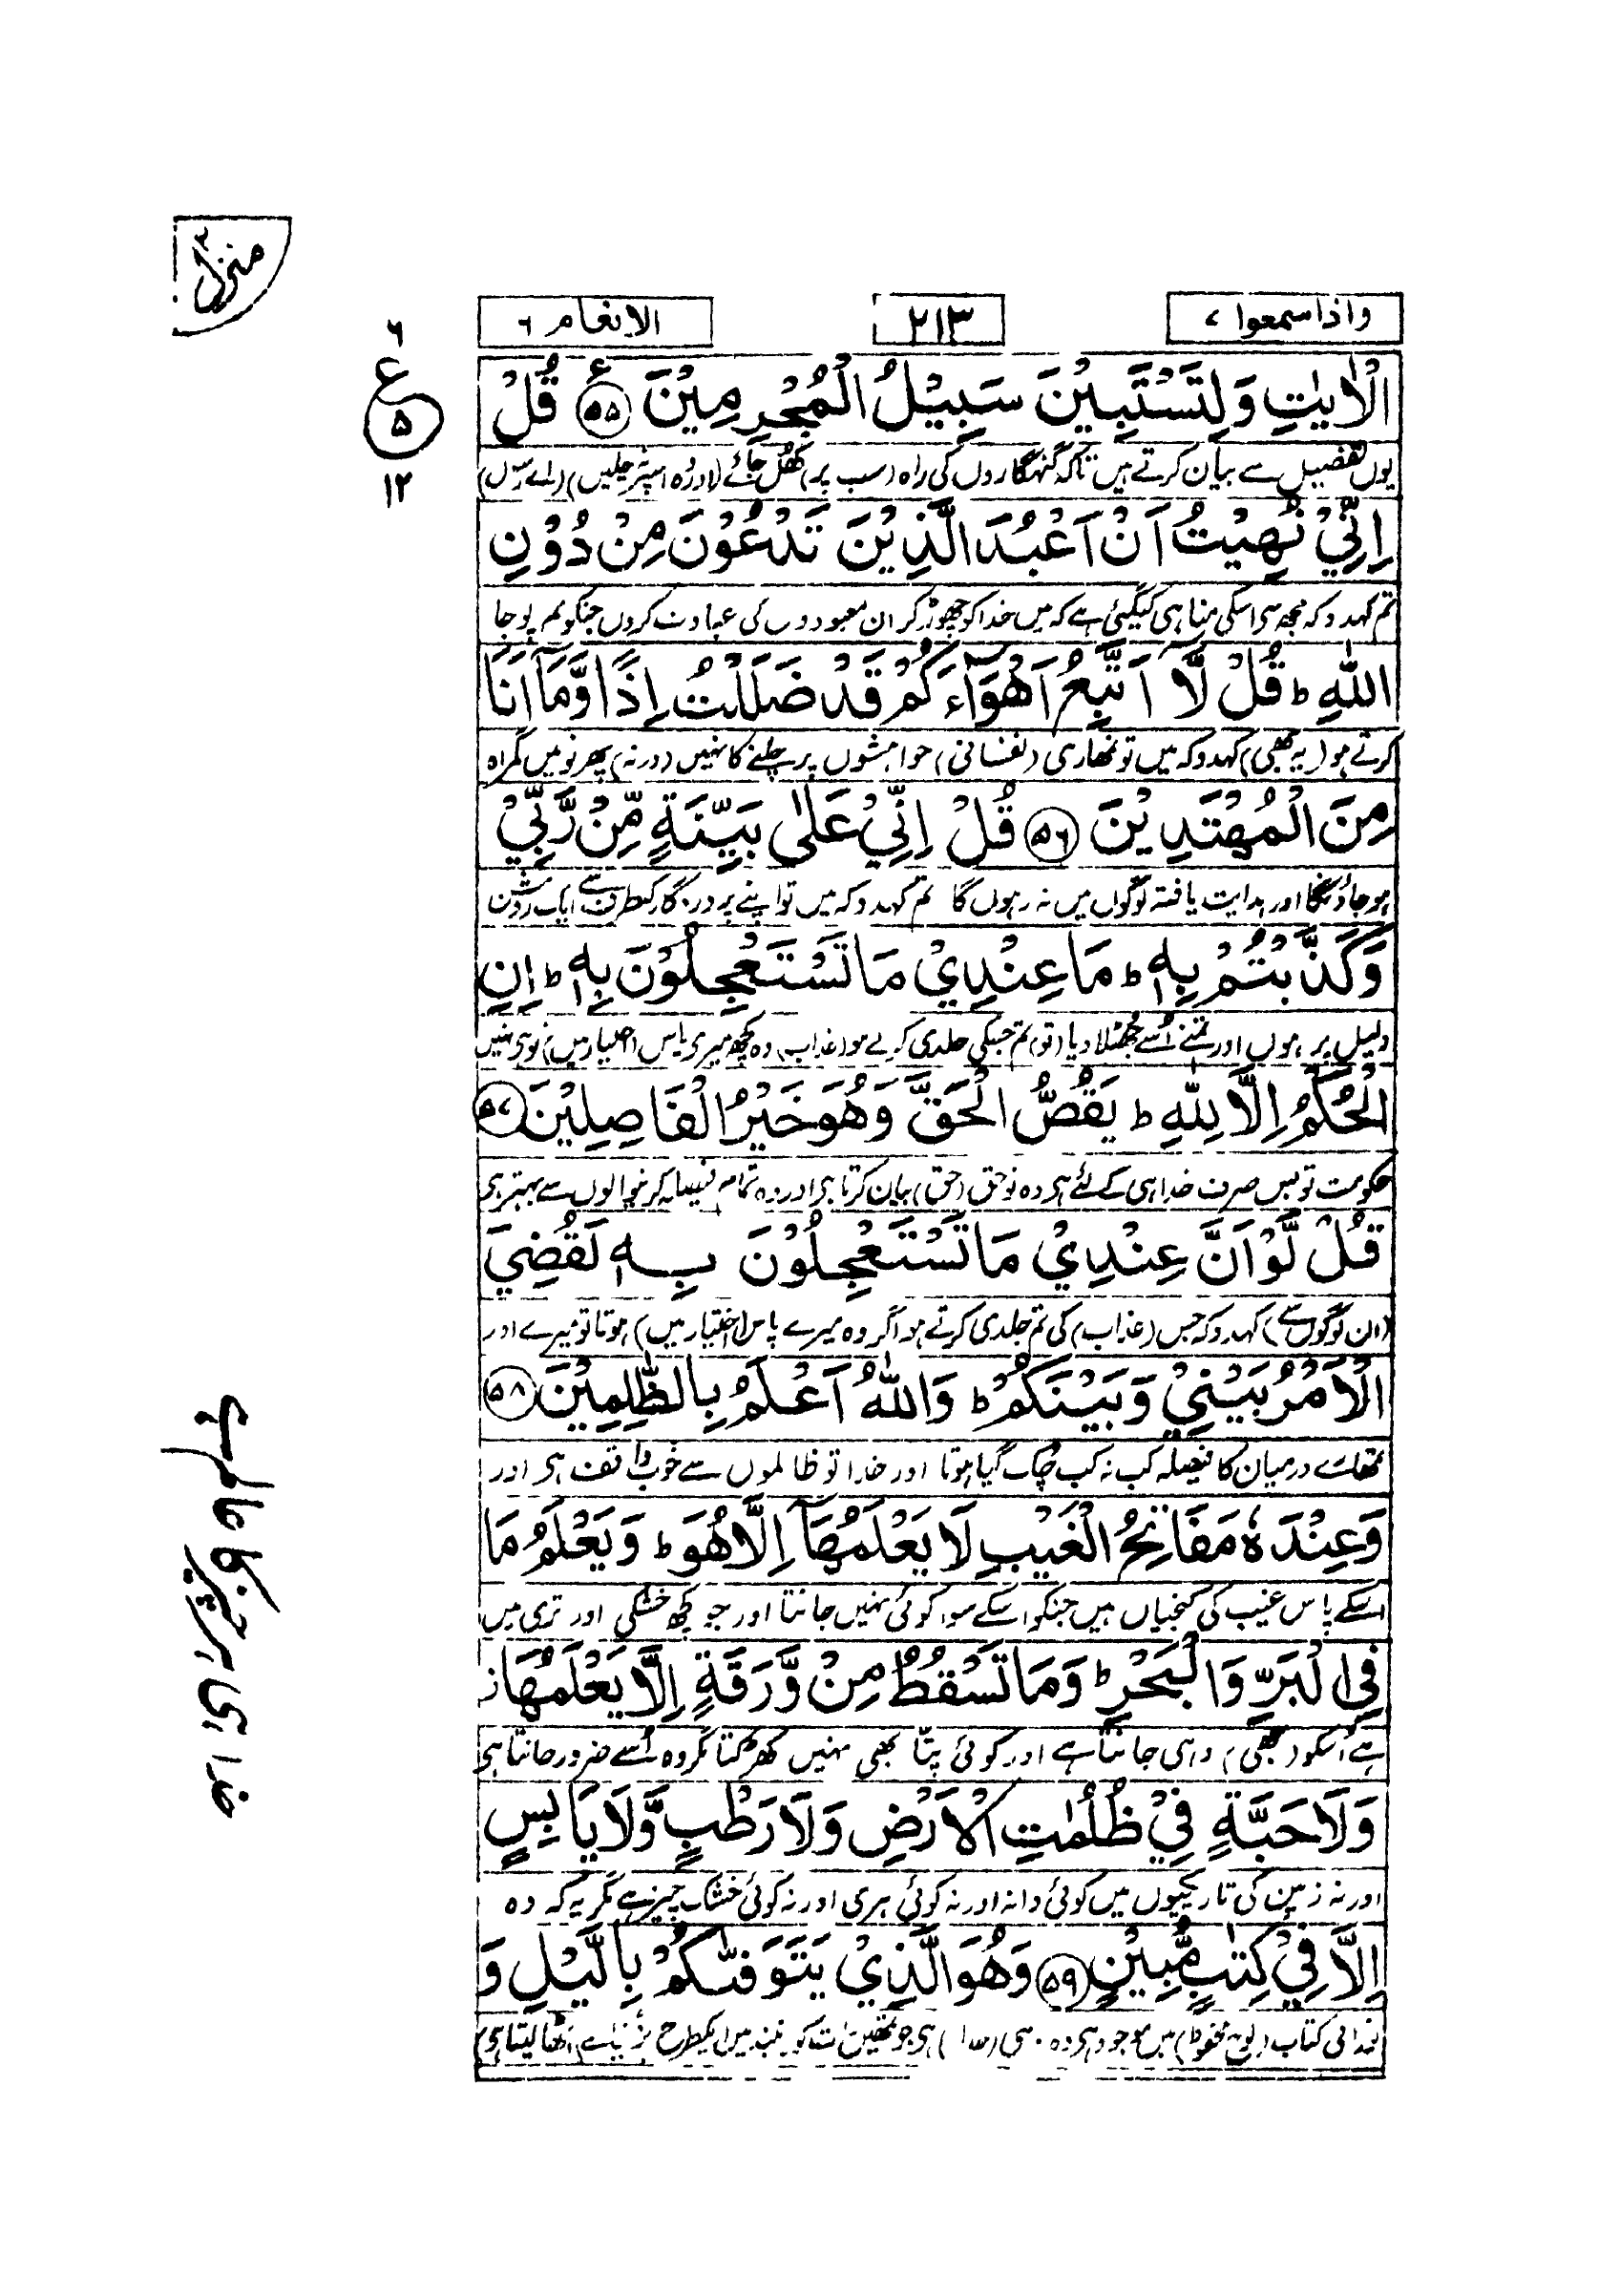 منزل ۲
واذا سمعوا ۷
۲۱۳
الانعام ۶
۶
ع
۵
۱۲
الْاٰيٰتِ وَلِتَسْتَبِيْنَ سَبِيْلُ الْمُجْرِمِيْنَ ۵۵ ع قُلْ
یوں تفصیل سے بیان کرتے ہیں تاکہ گنہگاروں کی راہ (سب پر) کھل جائے (اور وہ اسپر چلیں) (اے رسول)
اِنِّيْ نُهِيْتُ اَنْ اَعْبُدَ الَّذِيْنَ تَدْعُوْنَ مِنْ دُوْنِ
تم کہدو کہ مجھ سے اسکی مناہی کیگئی ہے کہ میں خدا کو چھوڑ کر ان معبودوں کی عبادت کروں جنکو تم پوجا
اللّٰهِ ط قُلْ لَّا اَتَّبِعُ اَهْوَآءَكُمْ قَدْ ضَلَلْتُ اِذًا وَّمَآ اَنَا
کرتے ہو (یہ بھی) کہدو کہ میں تو تمھاری (نفسانی) خواہشوں پر چلنے کا نہیں (ورنہ) پھر تو میں گمراہ
مِنَ الْمُهْتَدِيْنَ ۵۶ قُلْ اِنِّيْ عَلٰى بَيِّنَةٍ مِّنْ رَّبِّيْ
ہو جاؤنگا اور ہدایت یافتہ لوگوں میں نہ رہوں گا تم کہدو کہ میں تو اپنے پروردگار کیطرف سے ایک روشن
وَكَذَّبْتُمْ بِهٖ ط مَا عِنْدِيْ مَا تَسْتَعْجِلُوْنَ بِهٖ ط اِنِ
دلیل پر ہوں اور تمنے اُسے جھٹلا دیا (تو) تم جسکی جلدی کرتے ہو (عذاب) وہ کچھ میرے پاس (اختیار میں) تو ہے نہیں
الْحُكْمُ اِلَّا لِلّٰهِ ط يَقُصُّ الْحَقَّ وَهُوَ خَيْرُ الْفَاصِلِيْنَ ۵۷
حکومت تو بس صرف خدا ہی کے لئے ہی وہ تو حق (حق) بیان کرتا ہی اور وہ تمام فیصلہ کرنیوالوں سے بہتر ہی
قُلْ لَّوْ اَنَّ عِنْدِيْ مَا تَسْتَعْجِلُوْنَ بِهٖ لَقُضِيَ
(ان لوگوں سے) کہدو کہ جس (عذاب) کی تم جلدی کرتے ہو اگر وہ میرے پاس (اختیار میں) ہوتا تو میرے اور
الْاَمْرُ بَيْنِيْ وَبَيْنَكُمْ ط وَاللّٰهُ اَعْلَمُ بِالظّٰلِمِيْنَ ۵۸
تمھارے درمیان کا فیصلہ کب نہ کب چک گیا ہوتا اور خدا تو ظالموں سے خوب واقف ہی اور
وَعِنْدَهٗ مَفَاتِحُ الْغَيْبِ لَا يَعْلَمُهَآ اِلَّا هُوَ ط وَيَعْلَمُ مَا
اسکے پاس غیب کی کنجیاں ہیں جنکو اسکے سوا کوئی نہیں جانتا اور جو کچھ خشکی اور تری میں
فِي الْبَرِّ وَالْبَحْرِ ط وَمَا تَسْقُطُ مِنْ وَّرَقَةٍ اِلَّا يَعْلَمُهَا
ہے اُسکو (بھی) وہی جانتا ہے اور کوئی پتّا بھی نہیں کھڑکتا مگر وہ اُسے ضرور جانتا ہی
وَلَا حَبَّةٍ فِيْ ظُلُمٰتِ الْاَرْضِ وَلَا رَطْبٍ وَّلَا يَابِسٍ
اور نہ زمین کی تاریکیوں میں کوئی دانہ اور نہ کوئی ہری اور نہ کوئی خشک چیز ہے مگر یہ کہ وہ
اِلَّا فِيْ كِتٰبٍ مُّبِيْنٍ ۵۹ وَهُوَ الَّذِيْ يَتَوَفّٰىكُمْ بِالَّيْلِ وَ
نورانی کتاب (لوح محفوظ) میں موجود ہی وہ وہی (خدا) ہی جو تمھیں رات کو نیند میں ایکطرح پر دنیا سے اٹھا لیتا ہی